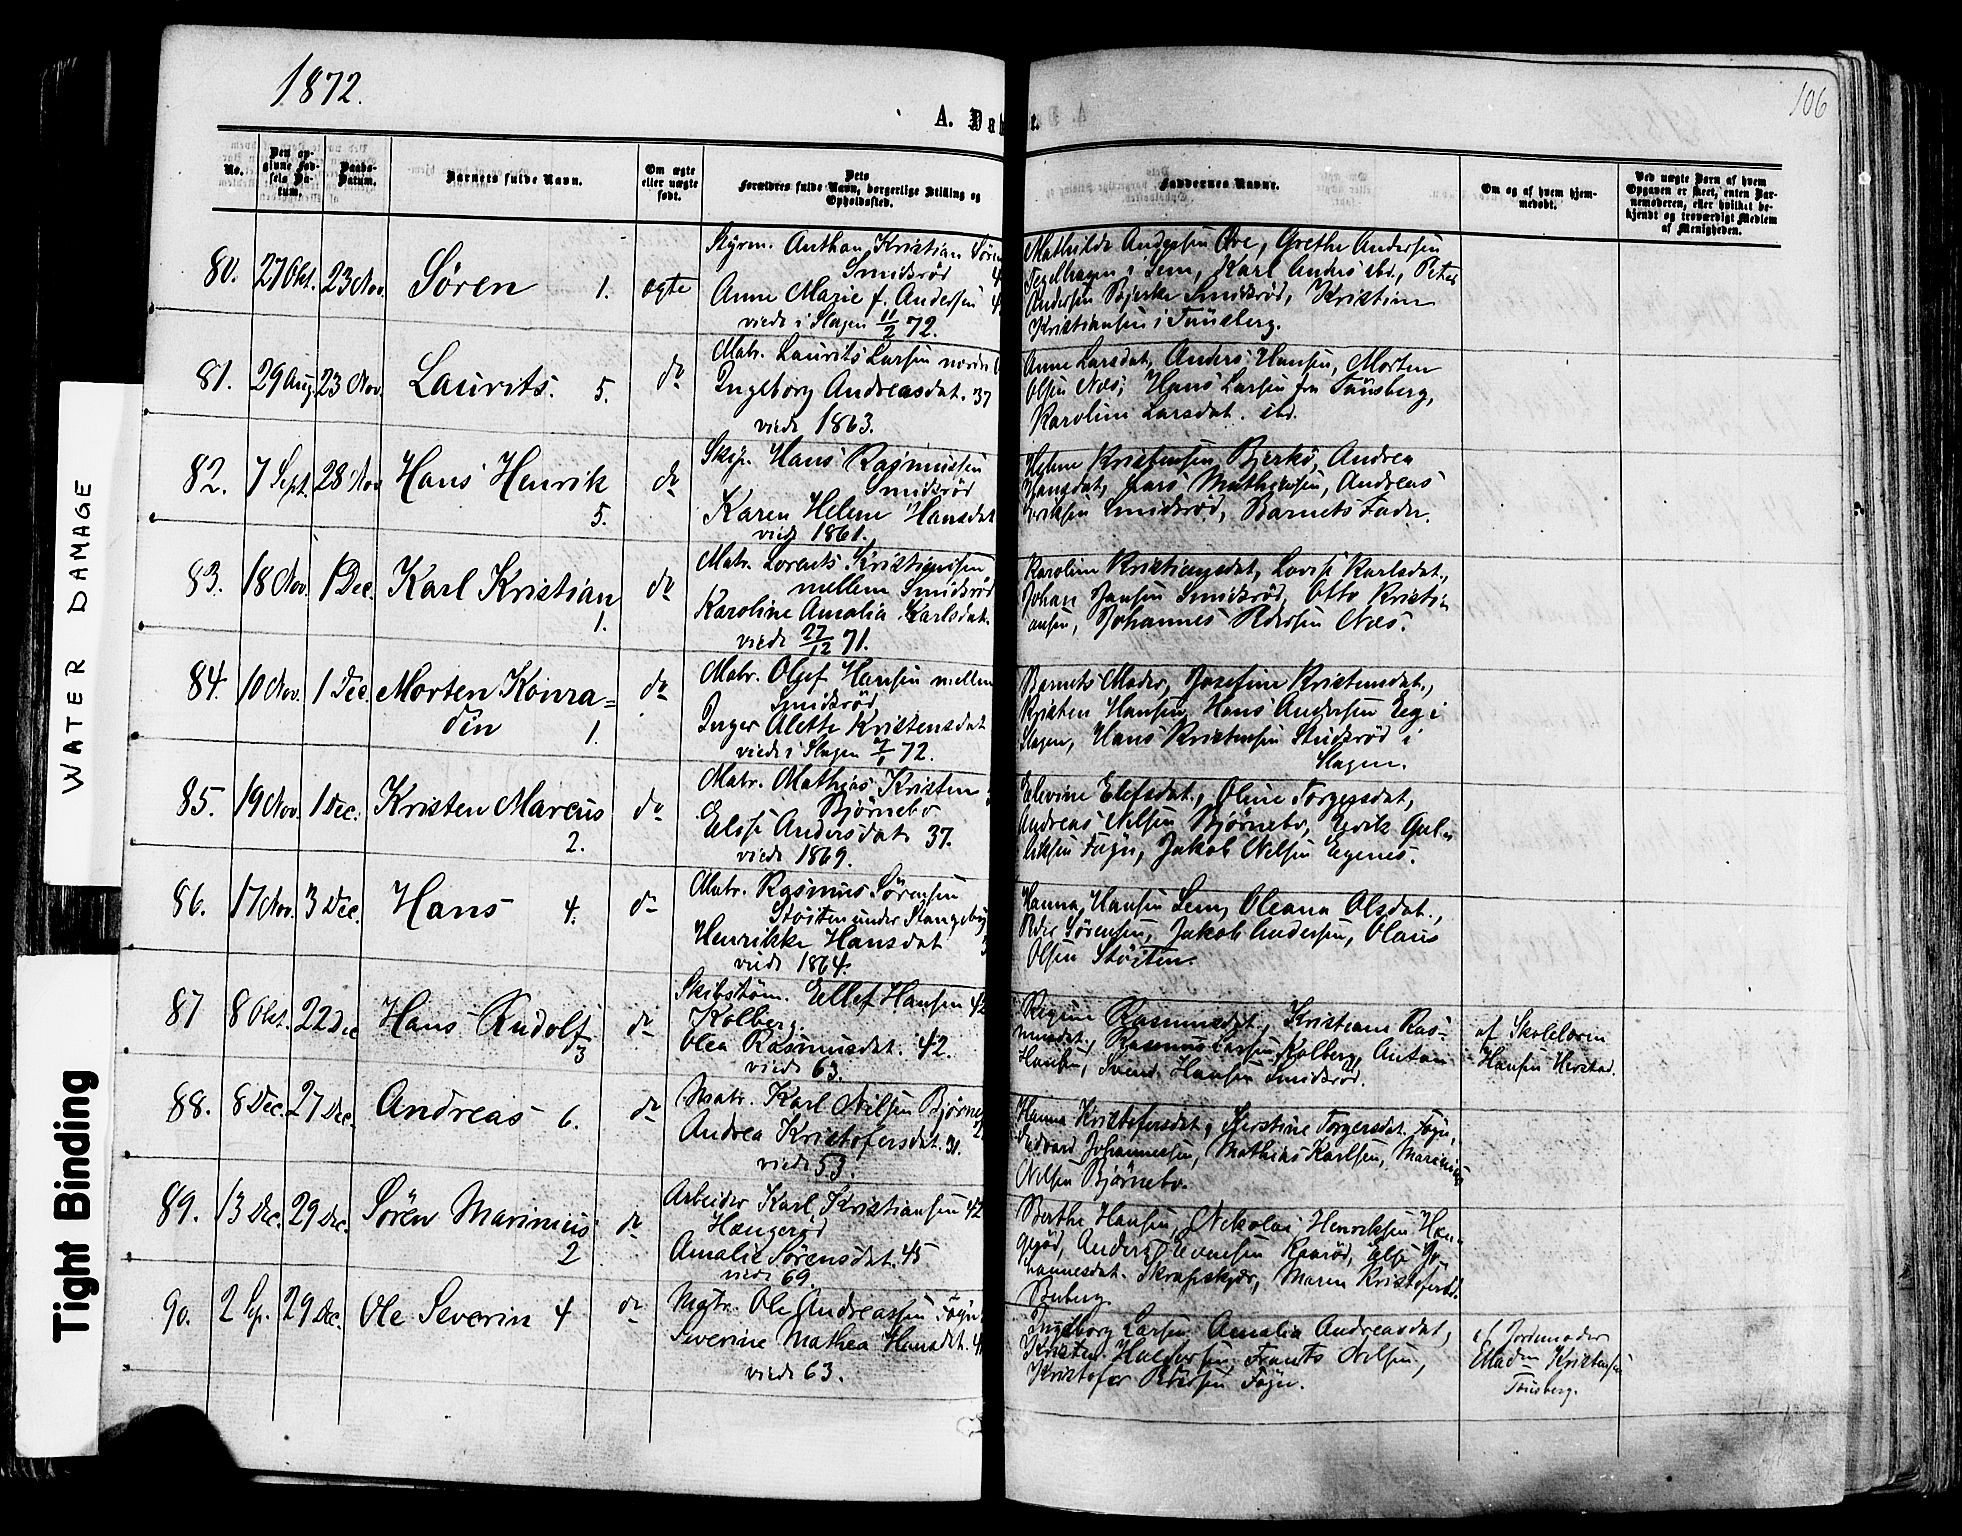 1872.
106
A. Døbte.
No.
Den opgivne Fødsels Datum.
Daabs-Datum.
Barnets fulde Navn.
Om ægte eller uægte født.
Dets Forældres fulde Navn, borgerlige Stilling og Opholdssted.
Faddernes Navne.
Om og af hvem hjemmedøbt.
Ved uægte Barn af hvem Opgaven er skeet, enten Barnemoderen, eller hvilket bekjendt og troværdigt Medlem af Menigheden.
80. 27 Okt. 23 Nov. Søren 1. ægte
Styrm. Anthon Kristian Søren
Smidsrød
Anne Marie f. Andersen
viede i Slagen 11/2 72.
Mathilde Andersen Øre, Grethe Andersen
Teglhagen i Sem, Karl Anders ibd., Peter
Andersen Bjerke Smidsrød, Kristian
Kristiansen i Tønsberg.
81. 29 Aug. 23 Nov. Laurits. 5. do
Matr. Laurits Larsen nordre
Ingeborg Andreasdat. 37
viede 1863.
Anne Larsdat, Anders Hansen, Morten
Olsen Næs, Hans Larsen fra Tønsberg,
Karoline Larsdat. ibd.
82. 7 Sept. 28 Nov Hans Henrik 5. do
Skip. Hans Rasmussen
Smidsrød
Karen Helene Hansdat
viede 1861.
Helene Kristensen Bjerkø, Andrea
Hansdat, Lars Mathisen, Andreas
Eriksen Smidsrød, Barnets Fader.
83. 18 Nov. 1 Dec. Karl Kristian 1. do
Matr. Lorents Kristiansen
mellem Smidsrød
Karoline Amalia Karlsdat.
viede 27/12 71.
Karoline Kristiansdat, Lovise Karlsdat.,
Johan Jansen Smidsrød, Otto Kristi
ansen, Johannes Pedersen Næs.
84. 10 Nov. 1 Dec. Morten Konra=
din 1. do
Matr. Olaf Hansen mellem
Smidsrød
Inger Alette Kristensdat
viede i Slagen 7/1 72.
Barnets Moder, Josefine Kristensdat.,
Kristen Hansen, Hans Andersen Eeg i
Slagen, Hans Kristensen Smidsrød i
Slagen.
85. 19 Nov. 1 Dec. Kristen Marcus 2. do
Matr. Mathias Kristen
Bjørnebo
Elise Andersdat. 37.
viede 1869.
Elevine Elefsdat., Oline Torgersdat,
Andreas Nilsen Bjørnebo, Eevik Gul
liksen Føgn, Jakob Nilsen Egenes.
86. 17 Nov. 3 Dec. Hans 4. do
Matr. Rasmus Sørensen
Støiten under Stangeby
Henrikke Hansdat
viede 1864.
Hanna Hansen Sem, Oleana Olsdat.,
Peder Sørensen, Jakob Andersen, Olaus
Olsen Støiten.
87 8 Okt. 22 Dec Hans Rudolf 3 do
Skibstøm. Ellef Hansen 42
Kolberg
Olea Rasmusdat. 42.
viede 63.
Regine Rasmusdat, Kristiane Ras-
musdat, Rasmus Larsen Kolberg, Anton
Hansen, Svend Hansen Smidsrød.
af Skolelærer
Hansen Herstad.
88. 8 Dec. 27 Dec. Andreas 6. do
Matr. Karl Nilsen Bjørne
Andrea Kristofersdat. 31.
viede 53.
Hanna Kristofersdat, Kerstine Torgersdat Føgn,
Edvard Johannessen, Mathias Karlsen, Marinius
Nilsen Bjørnebo.
89. 13 Dec. 29 Dec. Søren Marinius 2 do
Arbeider Karl Kristiansen 42
Hængerød
Amalie Sørensdat. 45
viede 69.
Berthe Hansen, Nikolai Henriksen Hæn-
gerød, Anders Evensen Raarød, Else Jo
hannesdat. Skrapskjær, Maren Kristofersd.
Buberg.
90. 2 Sep. 29 Dec. Ole Severin 4 do
Matr. Ole Andreassen Føgn
Severine Mathea Hansdt.
viede 63.
Ingeborg Larsen Amalia Andreasdat,
Kristen Haldorsen, Frants Nilsen,
Kristofer Pedersen Føgn.
af Jordemoder
Madm Kristensen
Tønsberg.
WATER DAMAGE
Tight Binding